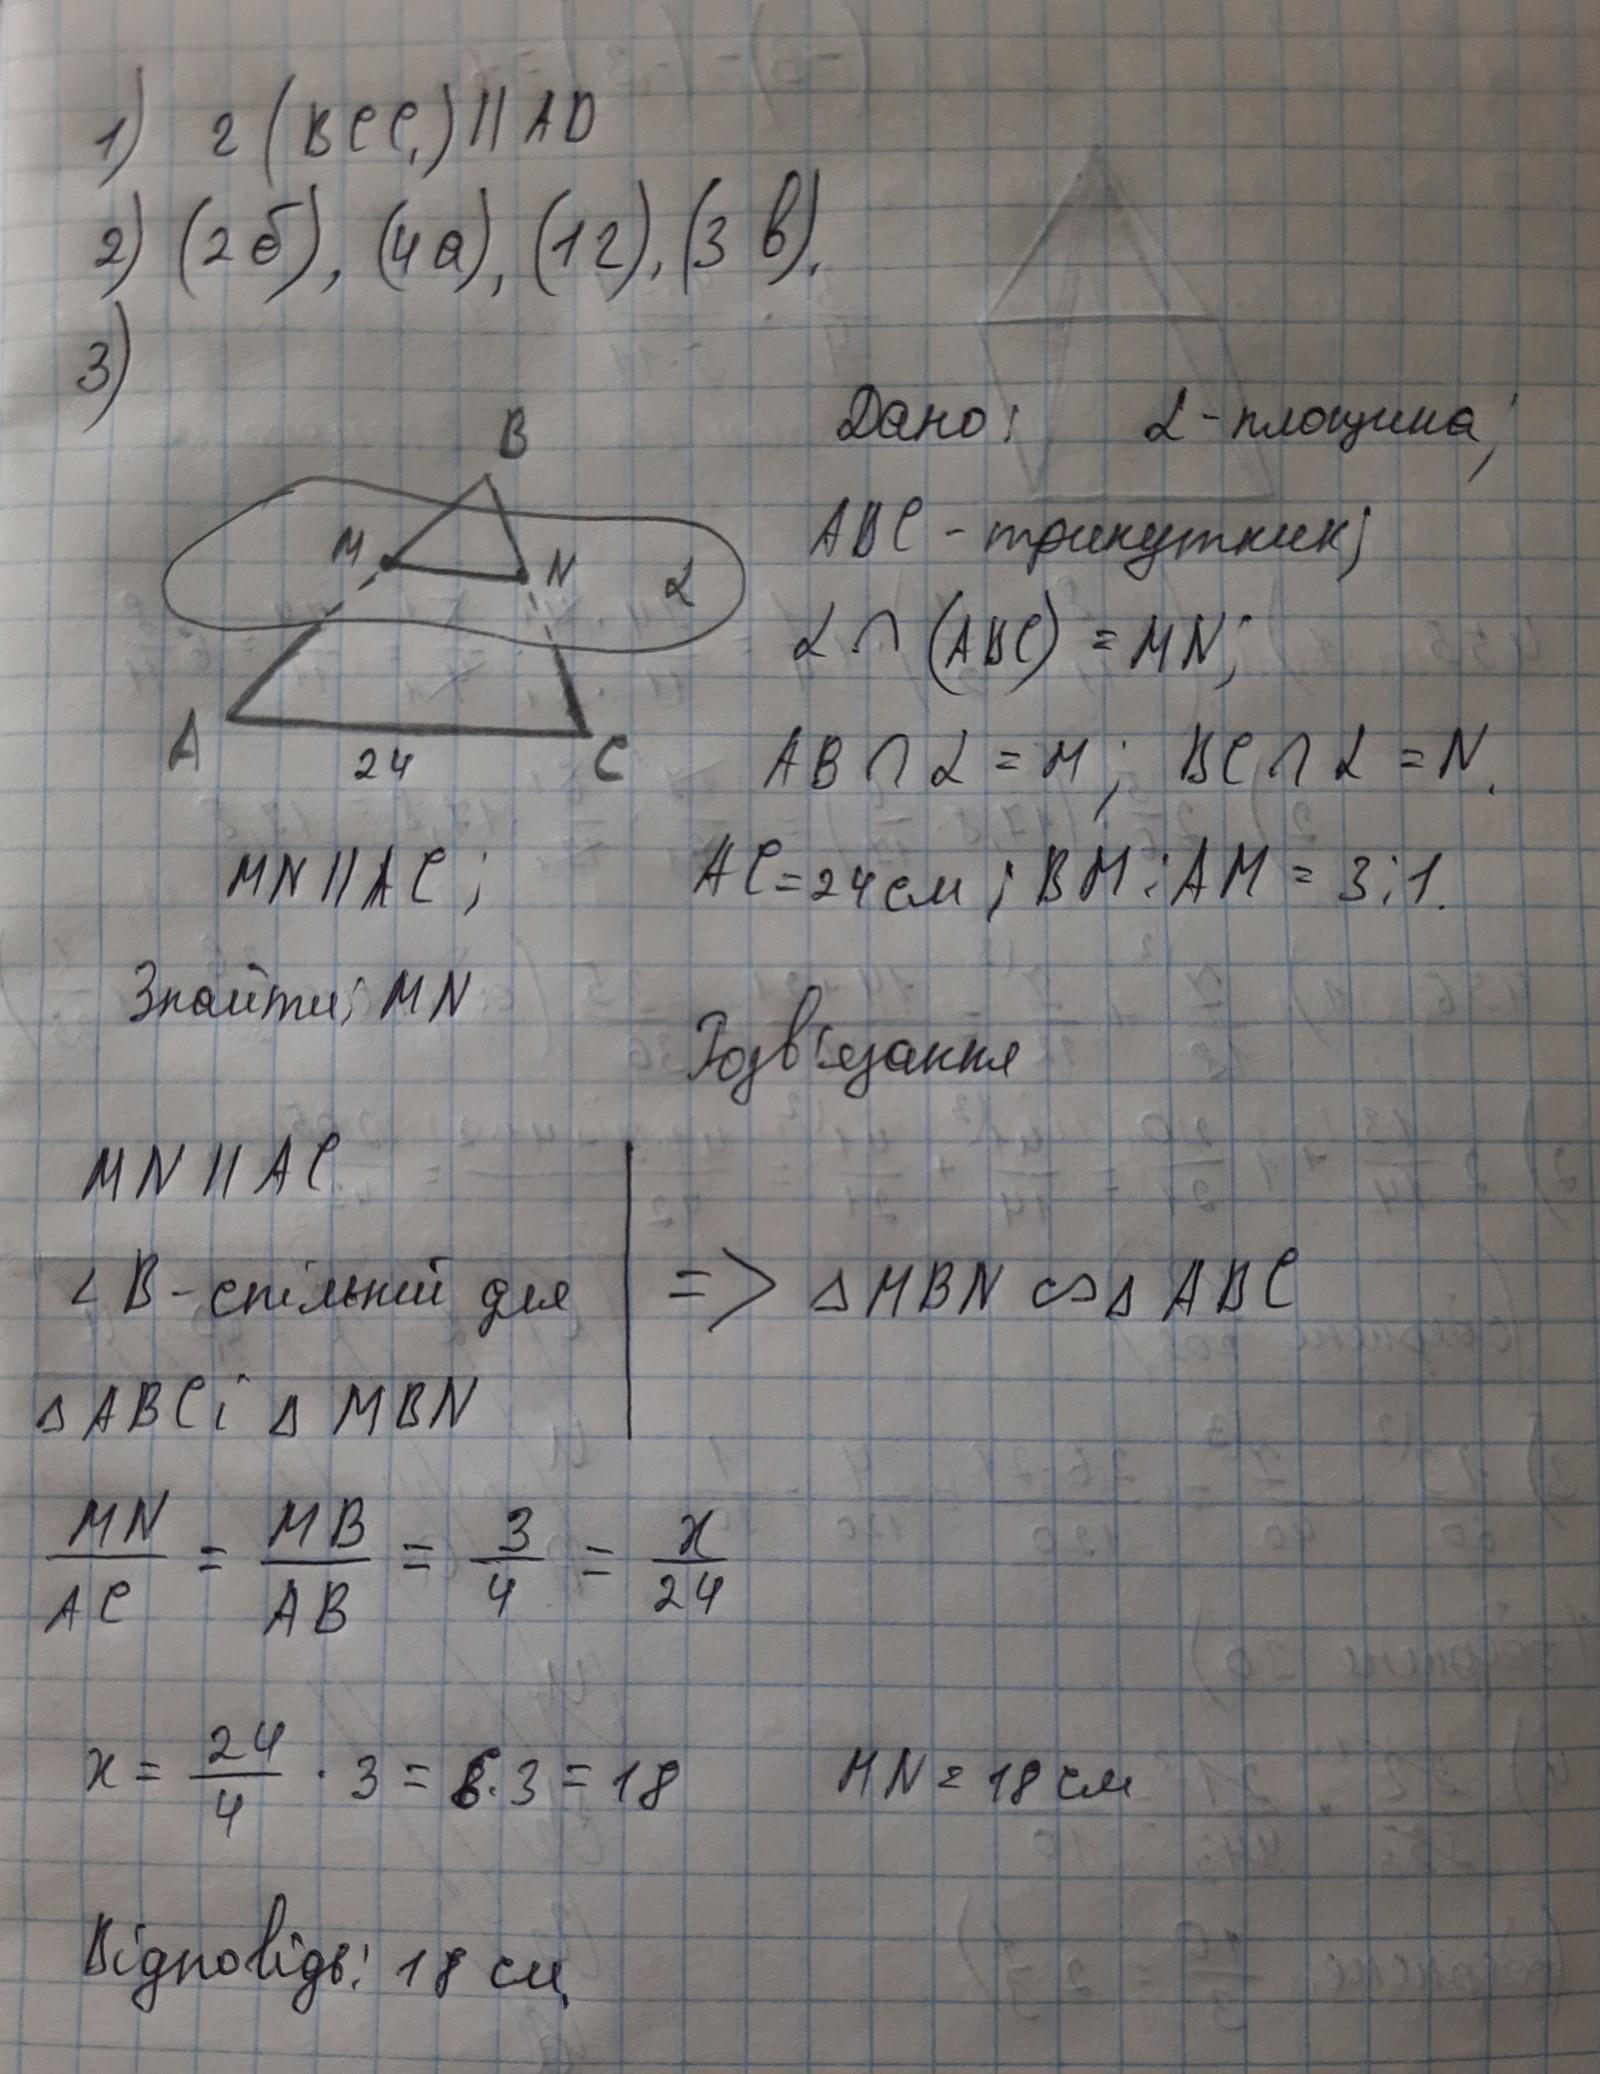 1) г (BCC₁) || AD
2) (2б), (4а), (1г), (3в).
3)
B
M
N
α
A
24
C
Дано: α - площина;
ABC - трикутник;
α ∩ (ABC) = MN;
AB ∩ α = M; BC ∩ α = N.
MN || AC; AC = 24 см; BM : AM = 3 : 1.
Знайти: MN
Розв'язання
MN || AC
∠B - спільний для => △MBN ∽ △ABC
△ABC і △MBN
MN/AC = MB/AB = 3/4 = x/24
x = 24/4 · 3 = 6 · 3 = 18 MN = 18 см
Відповідь: 18 см